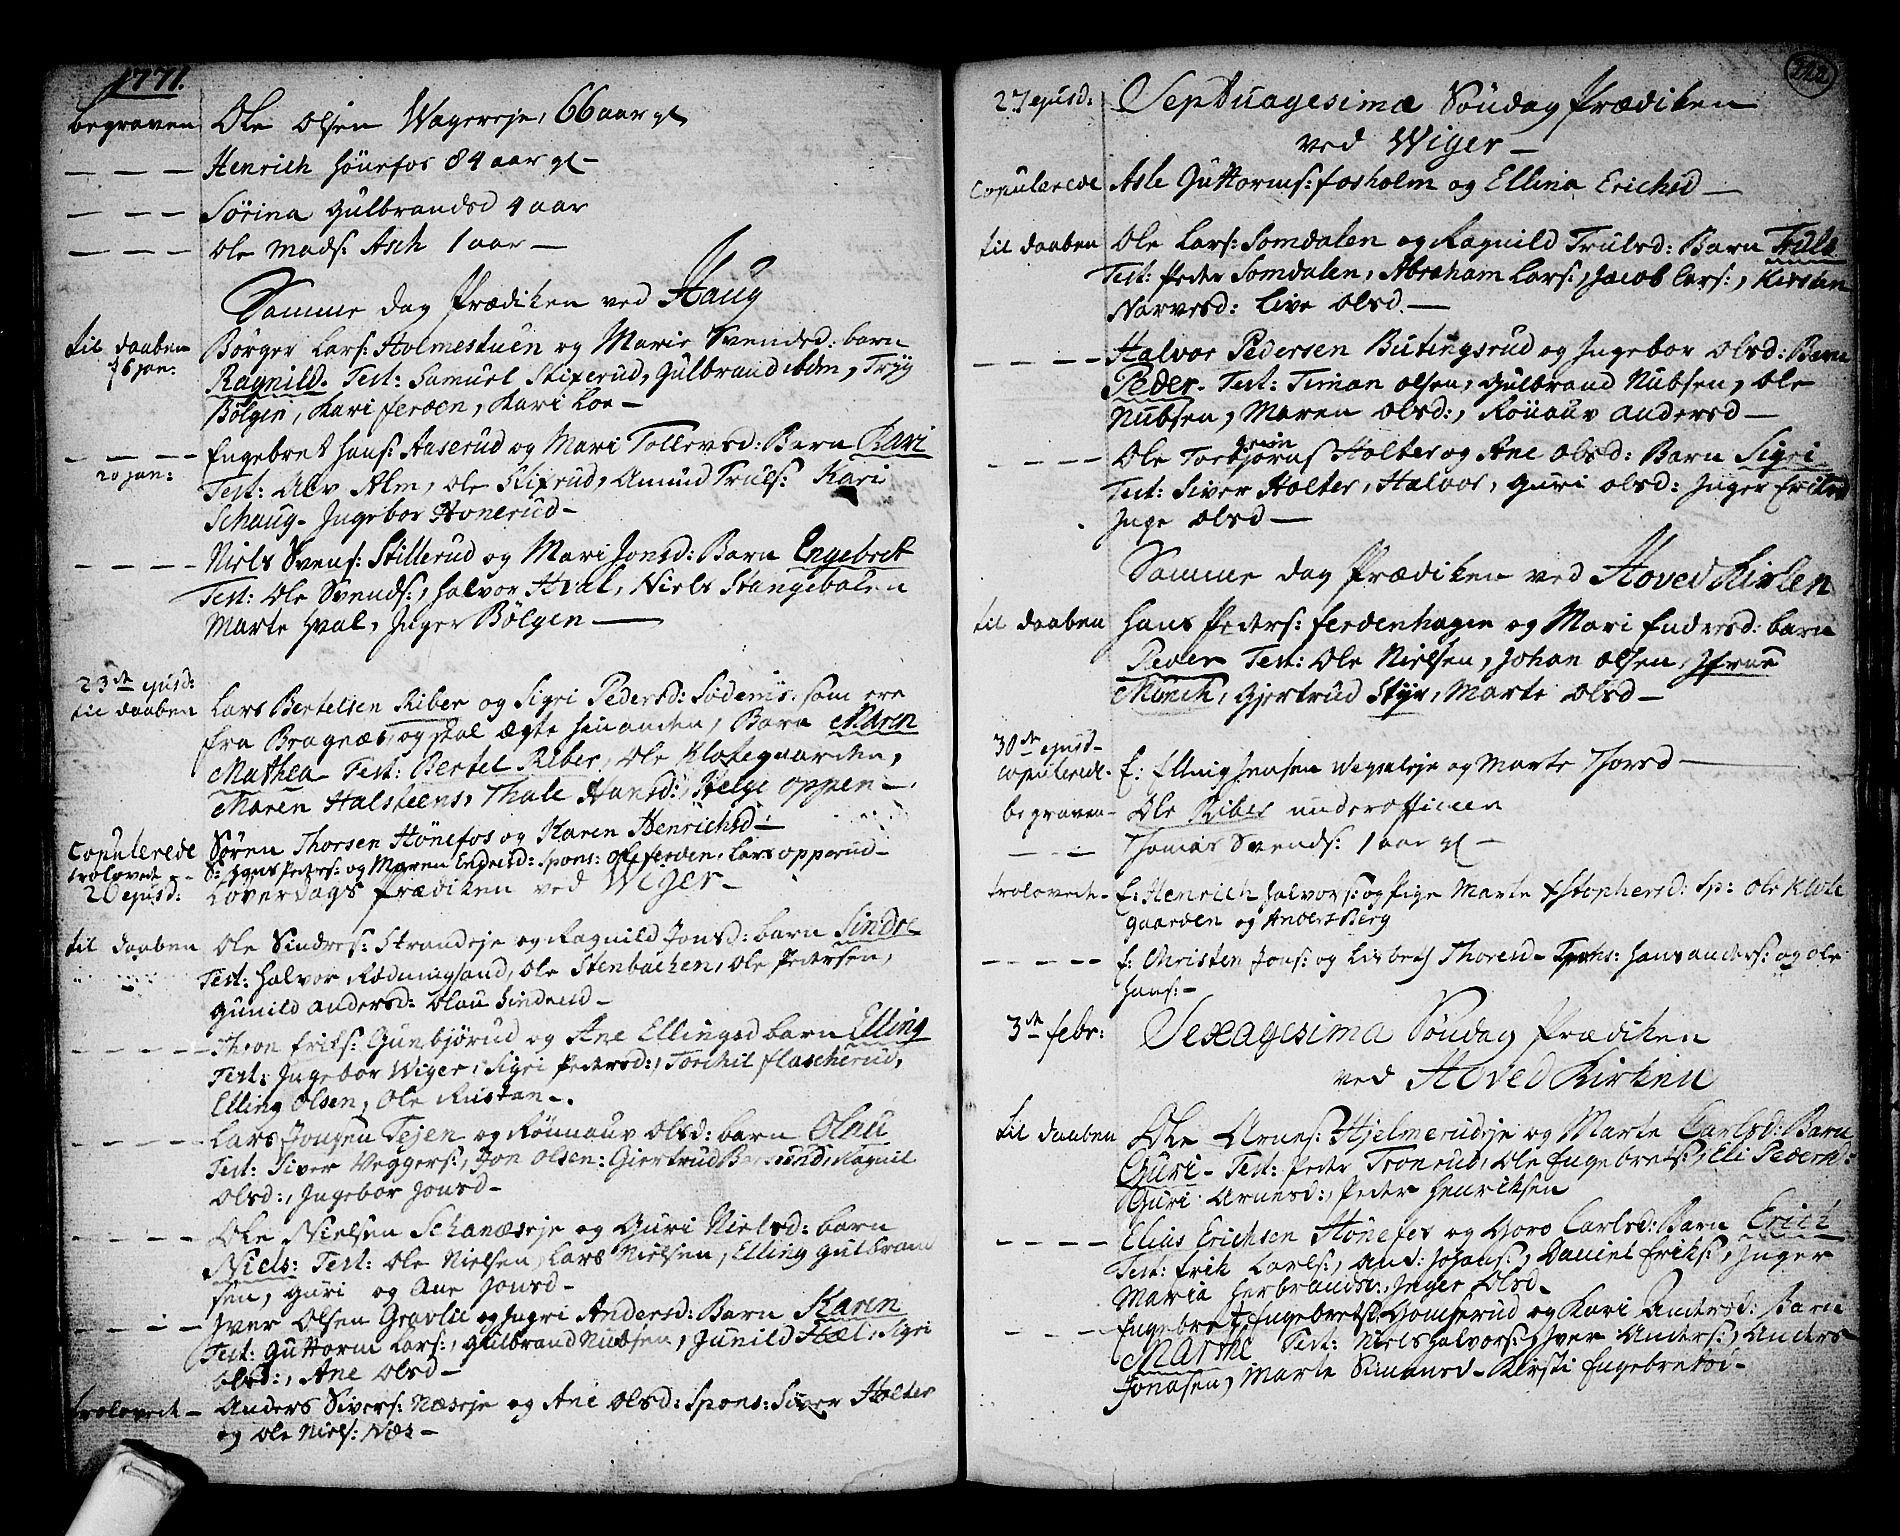 1771.
begraven Ole Olsen Wagereje, 66 aar gl
– – – Henrich Hönefos 84 aar gl –
– – – Sørina Gulbrandsd 4 aar
– – – Ole Mads: Asch 1 aar –
Samme dag Prædiken ved Haug
til daaben Börger Lars: Holmestuen og Marie Svendsd: barn
6 jan: Ragnild. Test: Samuel Skiferud, Gulbrand ibdm, Tryg
Bölgen, Kari ferden, Kari Loe –
– – – – Engebret Hans: Aaserud og Mari Tollevsd: Barn Kari
20 jan: Test: Alv Alm, Ole Skiferud, Amund Truls: Kari
Schaug – Ingebor Honerud –
– – – – Niels Svens: Stillerud og Mari Jonsd: Barn Engebret
Test: Ole Svends:, Halvor Hval, Niels Stangebalen
Marte Hval, Inger Bölgen –
23de ejusd:
til daaben Lars Bertelsen Riber og Sigri Pedersd: som ere
fra Bragnæs, og skal ægte hinanden, Barn Maren
Mathea – Test: Bertel Riber, Ole Klokegaarden,
Maren Halsteens, Thale Hansd:, Helge Oppen –
Copulerede Sören Thorsen Hönefos og Karen Henrichsd –
trolovede – – S: Hans Peders: og Maren Endresd: Spons: Ole ferden. Lars Opperud –
26 ejusd: Løverdags Prædiken ved Wiger –
til daaben Ole Sindres: Strandeje og Ragnild Jonsd: barn Sindre
Test: Halvor Rødningsand, Ole Stenbachen, Ole Pedersen,
Gunild Andersd: Olau Sindresd –
– – – – Thron Eriks: Gunbjörud og Ane Ellingsd barn Elling
Test: Ingebor Wiger, Sigri Pedersd:, Torchil Flascherud,
Elling Olsen, Ole Rustan –.
– – – – Lars Jonsen Tejen og Rönnauv Olsd: barn Olau
Test: Siver Veggers:, Jon Olsen: Giertrud Ragnil
Olsd:, Ingebor Jonsd –
– – – – Ole Nielsen Schanæseje og Guri Nielsd: barn
Niels: Test: Ole Nielsen, Lars Nielsen, Elling Gulbrand
sen, Guri og Ane Jonsd –
– – – – Iver Olsen Gravlie og Ingri Andersd: Barn Karen
Test: Guttorm Lars:, Gulbrand Nubsen, Gunild Hæl, Sigri
Olsd:, Ane Olsd –
trolovede – Anders Sivers: Næseje og Ane Olsd: Spons: Siver Holter
og Ole Niels: Næs –
212
27 ejusd: Septuagesimæ Söndag Prædiken
ved Wiger –
Copulerede Asle Guttorms: fosholm og Ellina Erichsd –
til daaben Ole Lars: Somdalen og Ragnild Trulsd: Barn Truls
Test: Peder Somdalen, Abraham Lars:, Jacob Lars:, Kirsten
Narvesd: Live Olsd. –
– – – – Halvor Pedersen Butingsrud og Ingebor Olsd: Barn
Peder – Test: Timan Olsen, Gulbrand Nubsen, Ole
Nubsen, Maren Olsd:, Rönauv Andersd –
– – – – Ole Torbjörns Holter og Ane Olsd: Barn Sigri
Test: Siver Holter, Halvor, Guri Olsd: Inger Erichsd
Inge Olsd –
Samme dag Prædiken ved Hoved Kirken
til daaben Hans Peders: ferdenhagen og Mari Endersd: barn
Peder Test: Ole Nielsen, Johan Olsen, Jfrue
Münch, Gjertrud Styr, Marte Olsd –
30de ejusd –
Copulerede – E: Elling Jensen Wegseleje og Marte Thorsd –
begraven – Ole Riber underofficier
– – Thomas Svends: 1 aar gl –
trolovede – E: Henrich Halvors: og Pige Marte Xstophersd: Sp: Ole Kloke
gaarden og Anders Berg
– – – – – E: Christen Jons: og Lisbeth Thoresd – Spons: Hans Anders: og Ole
Hans: –
3de febr: Sexagesima Söndag Prædiken
ved Hoved Kirken
til daaben Ole Arnes: Hjelmerudeje og Marte Carlsd: Barn
Guri – Test: Peder Tronrud, Ole Engebrets:, Eli Pedersd:
Guri Arnesd:, Peder Henriksen
– – – – Elius Erichsen Hönefos og Goro Carlsd: Barn Erich
Test: Erik Carls:, And: Johans:, Daniel Eriks:, Inger
Maria Herbrandsd:, Inger Olsd –
– – – Engebret Engebretsen Gomserud og Kari Andersd: Barn
Marthe Test: Niels Halvors:, Iver Anders:, Anders
Jonasen, Marte Simensd – Kirsti Engebretsd –